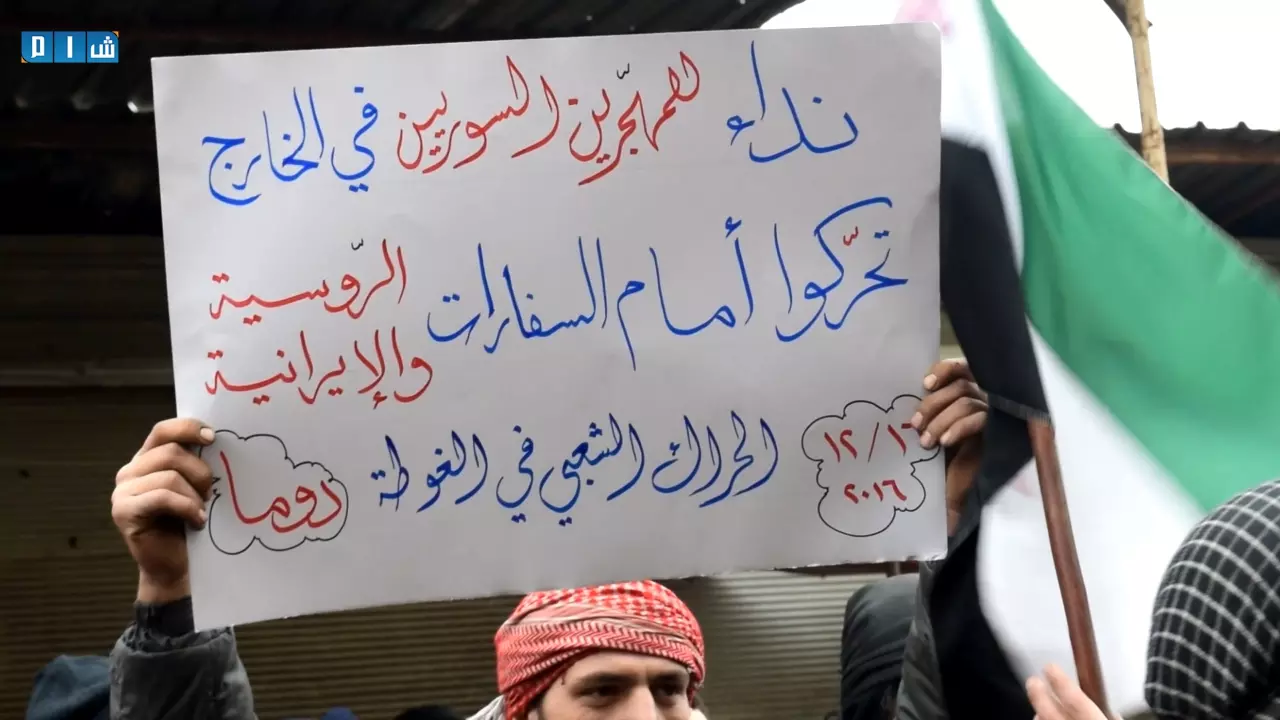 شام
نداء للمهجّرين السوريين في الخارج
تحرّكوا أمام السفارات الرّوسية
والإيرانية
الحراك الشعبي في الغوطة
دوما
١٢/١٦
٢٠١٦